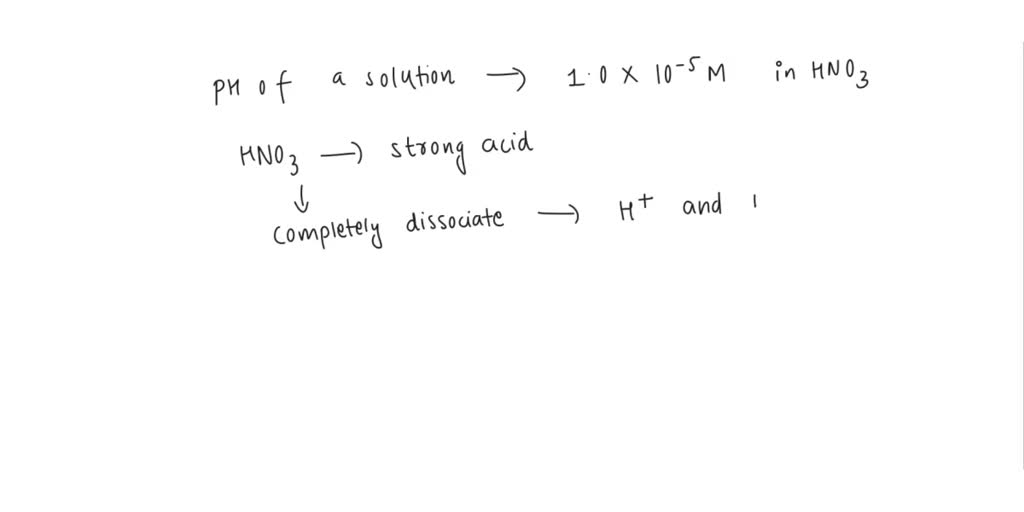 PH of a solution → 1.0 X 10⁻⁵ M in HNO₃
HNO₃ → strong acid
↓
completely dissociate → H⁺ and